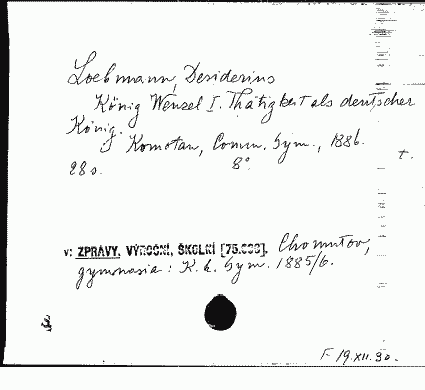 Loebmann, Desiderius
König Wenzel I. Thätigkeit als deutscher
König.
Komotau, Comm. Gym., 1886.
28 s. 8°
t.
v: ZPRÁVY, VÝROČNÍ, ŠKOLNÍ [75.000], Chomutov,
gymnasia: K. k. Gym. 1885/6.
F 19.XII.30.